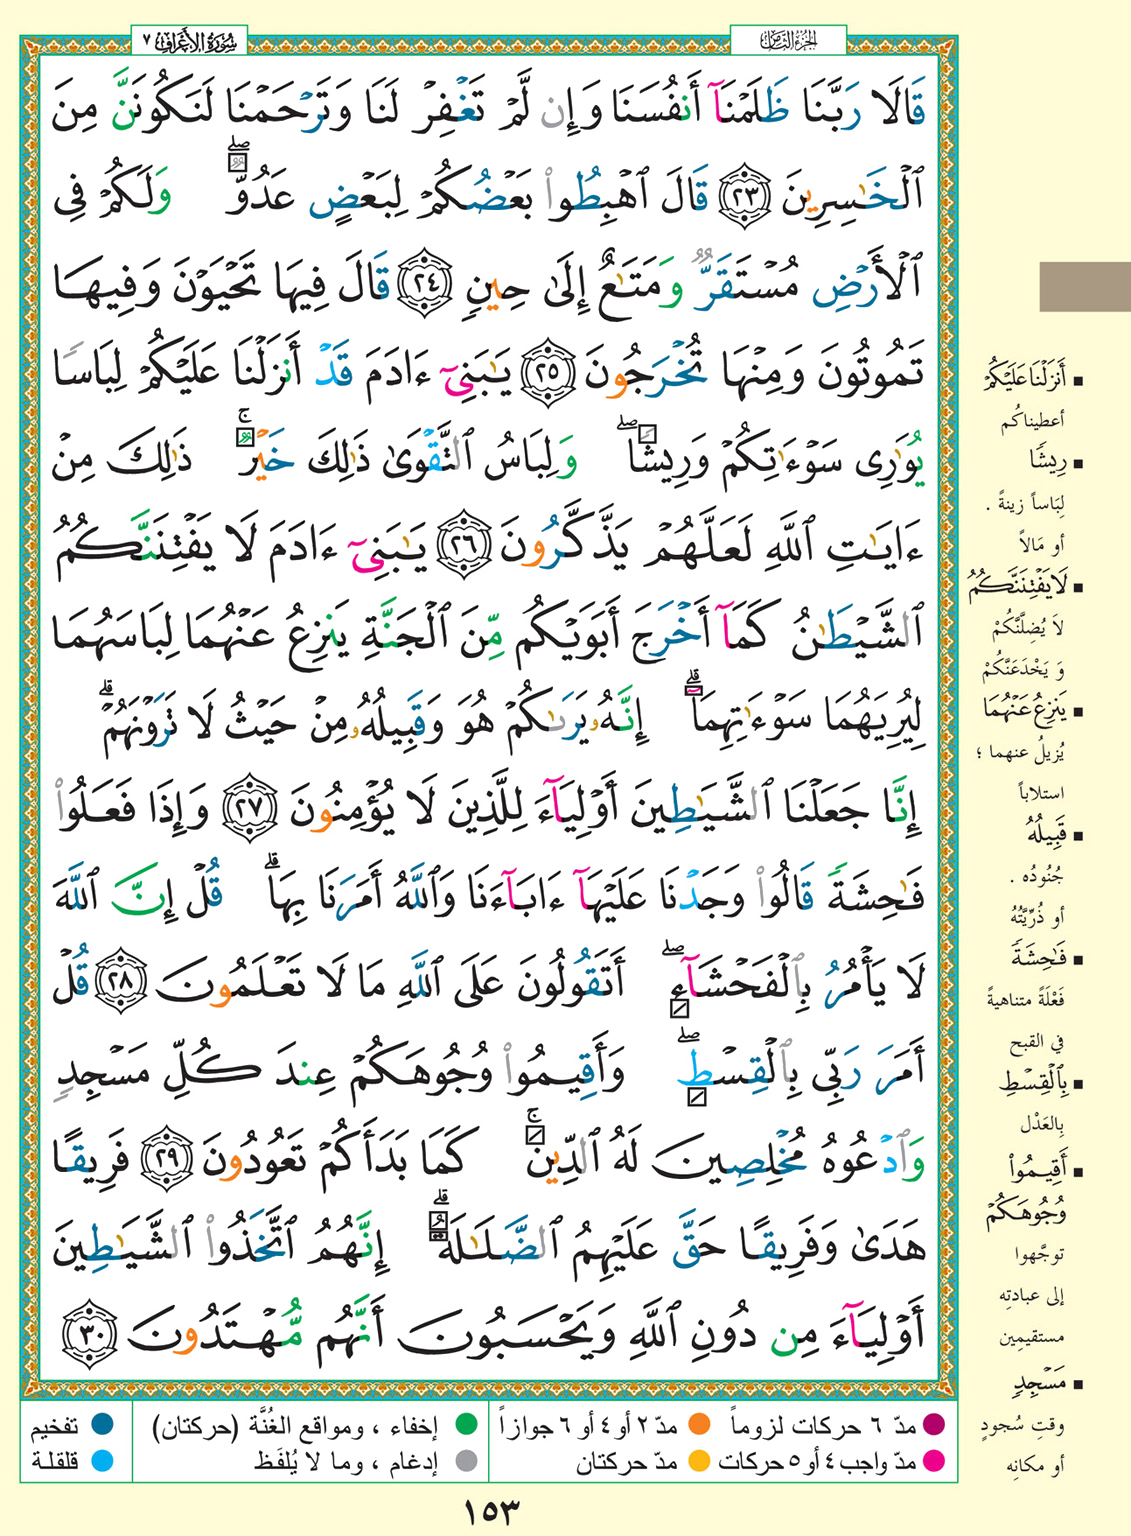 سُورَةُ الأَعْرَافِ ٧
الجزء الثامن
قَالَا رَبَّنَا ظَلَمْنَآ أَنفُسَنَا وَإِن لَّمْ تَغْفِرْ لَنَا وَتَرْحَمْنَا لَنَكُونَنَّ مِنَ
ٱلْخَٰسِرِينَ ٢٣ قَالَ ٱهْبِطُوا۟ بَعْضُكُمْ لِبَعْضٍ عَدُوٌّ ۖ وَلَكُمْ فِى
ٱلْأَرْضِ مُسْتَقَرٌّ وَمَتَٰعٌ إِلَىٰ حِينٍ ٢٤ قَالَ فِيهَا تَحْيَوْنَ وَفِيهَا
تَمُوتُونَ وَمِنْهَا تُخْرَجُونَ ٢٥ يَٰبَنِىٓ ءَادَمَ قَدْ أَنزَلْنَا عَلَيْكُمْ لِبَاسًا
يُوَٰرِى سَوْءَٰتِكُمْ وَرِيشًا ۖ وَلِبَاسُ ٱلتَّقْوَىٰ ذَٰلِكَ خَيْرٌ ۚ ذَٰلِكَ مِنْ
ءَايَٰتِ ٱللَّهِ لَعَلَّهُمْ يَذَّكَّرُونَ ٢٦ يَٰبَنِىٓ ءَادَمَ لَا يَفْتِنَنَّكُمُ
ٱلشَّيْطَٰنُ كَمَآ أَخْرَجَ أَبَوَيْكُم مِّنَ ٱلْجَنَّةِ يَنزِعُ عَنْهُمَا لِبَاسَهُمَا
لِيُرِيَهُمَا سَوْءَٰتِهِمَآ ۗ إِنَّهُۥ يَرَىٰكُمْ هُوَ وَقَبِيلُهُۥ مِنْ حَيْثُ لَا تَرَوْنَهُمْ ۗ
إِنَّا جَعَلْنَا ٱلشَّيَٰطِينَ أَوْلِيَآءَ لِلَّذِينَ لَا يُؤْمِنُونَ ٢٧ وَإِذَا فَعَلُوا۟
فَٰحِشَةً قَالُوا۟ وَجَدْنَا عَلَيْهَآ ءَابَآءَنَا وَٱللَّهُ أَمَرَنَا بِهَا ۗ قُلْ إِنَّ ٱللَّهَ
لَا يَأْمُرُ بِٱلْفَحْشَآءِ ۖ أَتَقُولُونَ عَلَى ٱللَّهِ مَا لَا تَعْلَمُونَ ٢٨ قُلْ
أَمَرَ رَبِّى بِٱلْقِسْطِ ۖ وَأَقِيمُوا۟ وُجُوهَكُمْ عِندَ كُلِّ مَسْجِدٍ
وَٱدْعُوهُ مُخْلِصِينَ لَهُ ٱلدِّينَ ۚ كَمَا بَدَأَكُمْ تَعُودُونَ ٢٩ فَرِيقًا
هَدَىٰ وَفَرِيقًا حَقَّ عَلَيْهِمُ ٱلضَّلَٰلَةُ ۗ إِنَّهُمُ ٱتَّخَذُوا۟ ٱلشَّيَٰطِينَ
أَوْلِيَآءَ مِن دُونِ ٱللَّهِ وَيَحْسَبُونَ أَنَّهُم مُّهْتَدُونَ ٣٠
أَنزَلْنَا عَلَيْكُمْ
أعطيناكُم
رِيشًا
لِبَاساً زينةً .
أو مَالاً
لَا يَفْتِنَنَّكُمُ
لاَ يُضِلنَّكُمْ
وَ يَخْدَعَنَّكُمْ
يَنزِعُ عَنْهُمَا
يُزيلُ عنهما ؛
استلاباً
قَبِيلُهُ
جُنُودُه .
أو ذُرِّيَّتُهُ
فَٰحِشَةً
فَعْلَةً متناهيةً
في القبح
بِٱلْقِسْطِ
بِالعَدْل
أَقِيمُوا۟
وُجُوهَكُمْ
توجَّهوا
إلى عبادتِه
مستقيمِين
مَسْجِدٍ
وقتِ سُجودٍ
أو مكانِه
مدّ ٦ حركات لزوماً
مدّ ٢ أو ٤ أو ٦ جوازاً
إخفاء ، ومواقع الغُنَّة (حركتان)
تفخيم
مدّ واجب ٤ أو ٥ حركات
مدّ حركتان
إدغام ، وما لا يُلفَظ
قلقلة
١٥٣